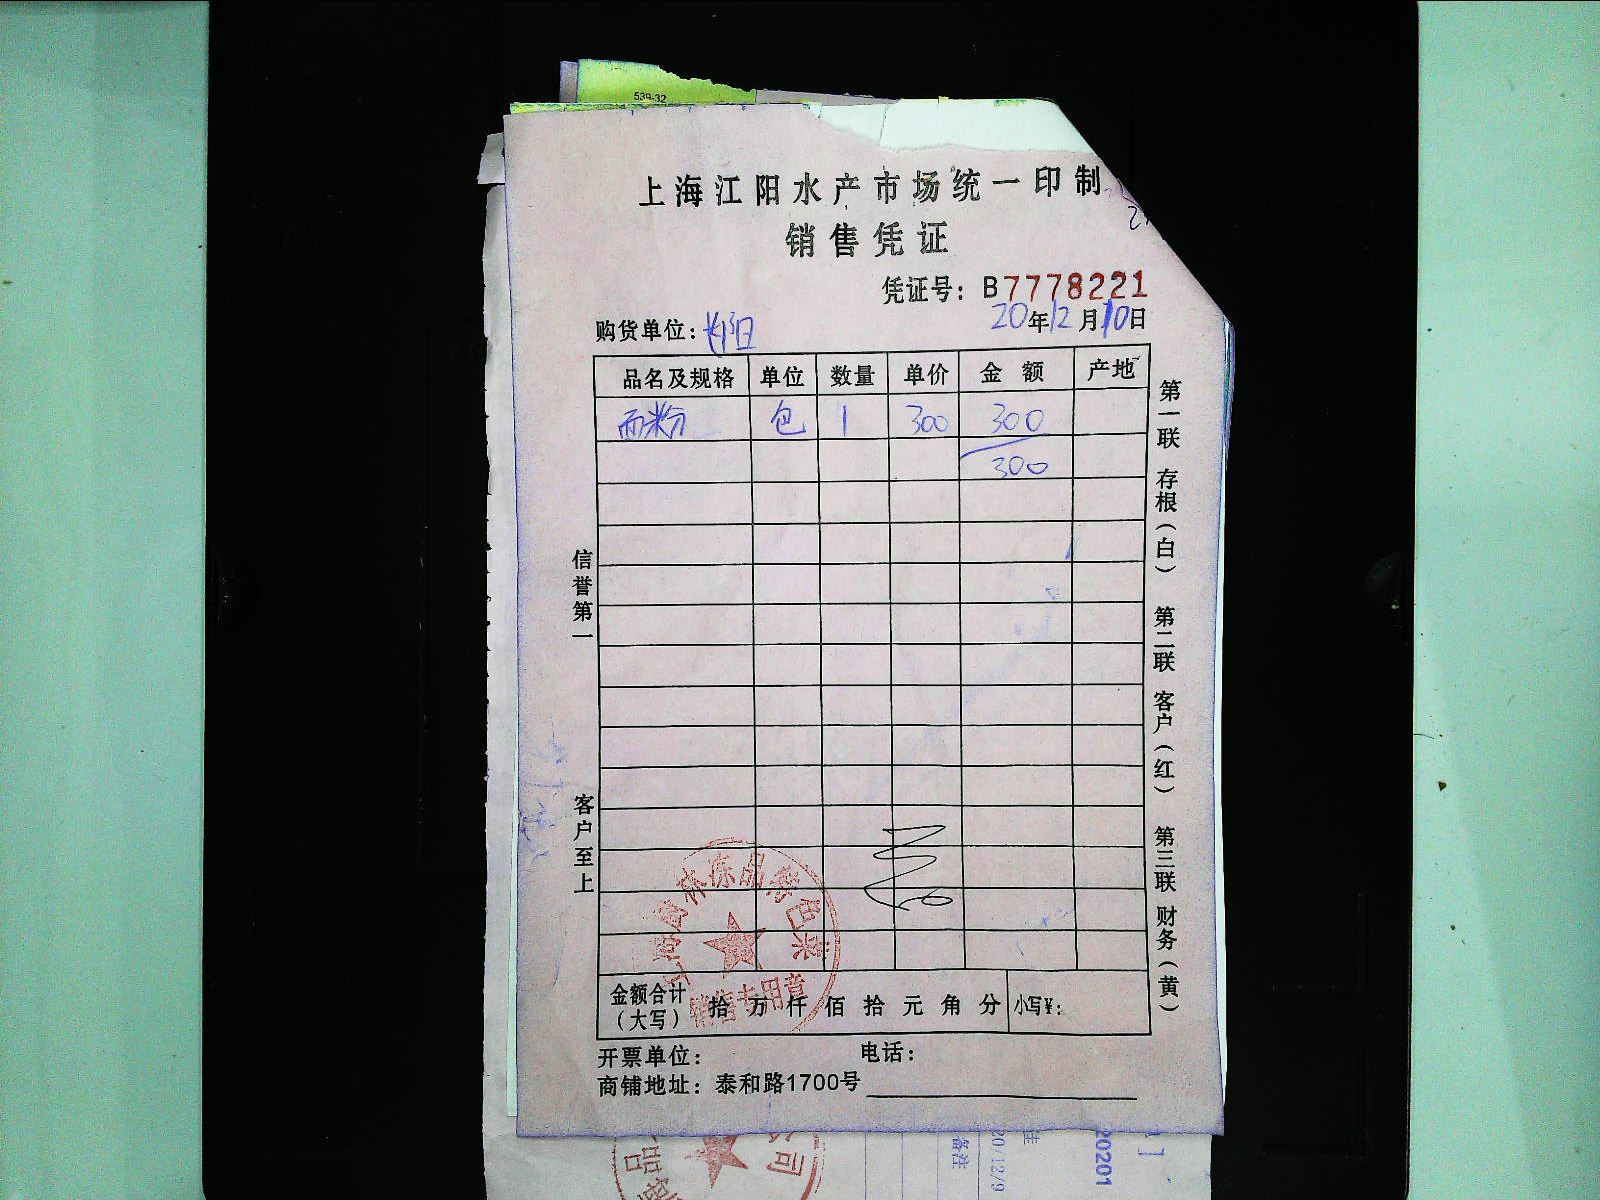 539-32
上海江阳水产市场统一印制
销售凭证
凭证号：B7778221
购货单位：长阳
20年12月10日
品名及规格 单位 数量 单价 金额 产地
面粉 包 1 300 300
300
信誉第一
客户至上
第一联 存根（白） 第二联 客户（红） 第三联 财务（黄）
销售专用章
金额合计（大写） 拾 万 仟 佰 拾 元 角 分 小写¥：
开票单位： 电话：
商铺地址：泰和路1700号
备注
20/12/9
20201